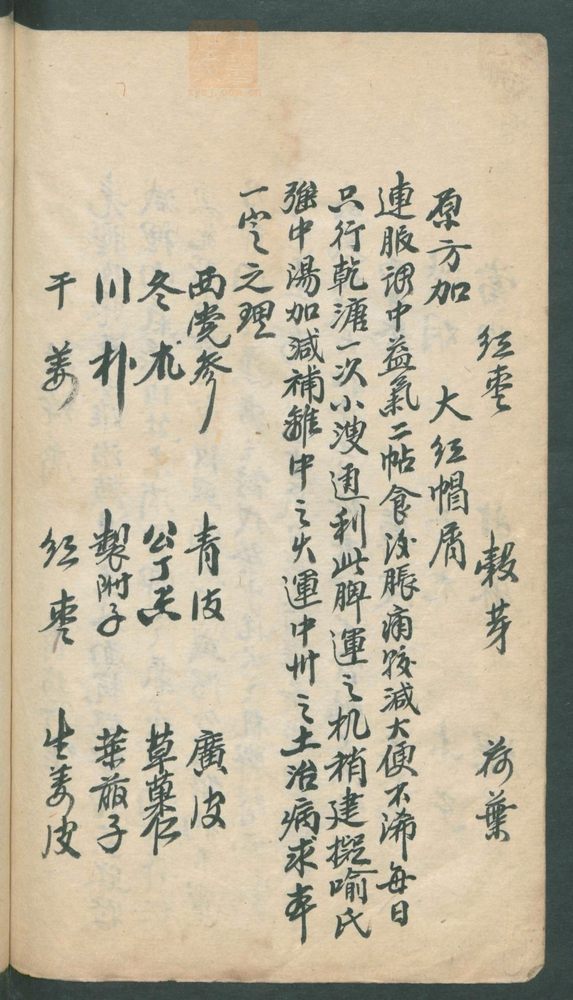 红枣 穀芽 荷葉
原方加 大红帽屑
連服调中益氣二帖食後脹痛較減大便不浠每日
只行乾溏一次小溲通利此脾運之机稍建擬喻氏
强中湯加減補離中之火運中州之土治病求本
一定之理
西党參 青皮 廣皮
冬朮 公丁香 草菓仁
川朴 製附子 莱菔子
干姜 红枣 生姜皮